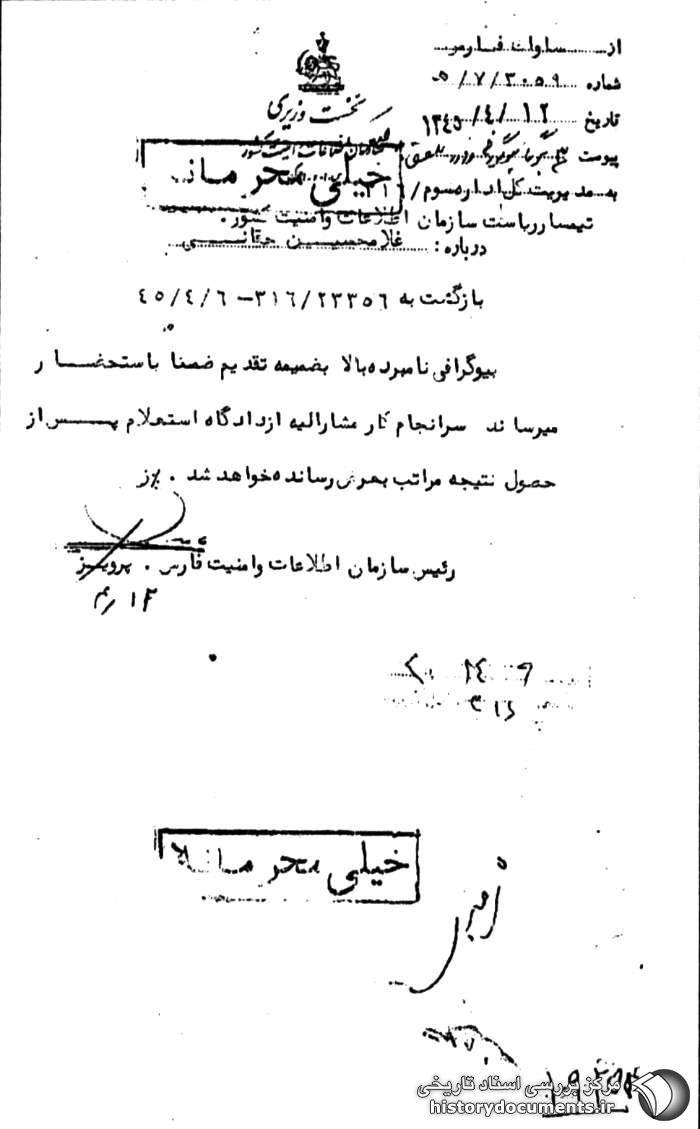 از ساواک فارس
شماره ۳۰۵۹ / ۷ / ۵
تاریخ ۱۲ / ۴ / ۱۳۴۵
پیوست
نخست وزیری
سازمان اطلاعات و امنیت کشور
خیلی محرمانه
به مدیریت کل اداره سوم / ۳۱۶
تیمسار ریاست سازمان اطلاعات و امنیت کشور .
درباره : غلامحسین حقانی
بازگشت به ۲۳۳۵۶/۳۱۶ – ۴۵/۴/۶
بیوگرافی نامبرده بالا بضمیمه تقدیم ضمنا باستحضار
میرساند سرانجام کار مشارالیه از دادگاه استعلام پس از
حصول نتیجه مراتب بعرض رسانده خواهد شد .
رئیس سازمان اطلاعات و امنیت فارس . پرویز
۱۲ / ۴
۳۱۶
خیلی محرمانه
مرکز بررسی اسناد تاریخی
historydocuments.ir